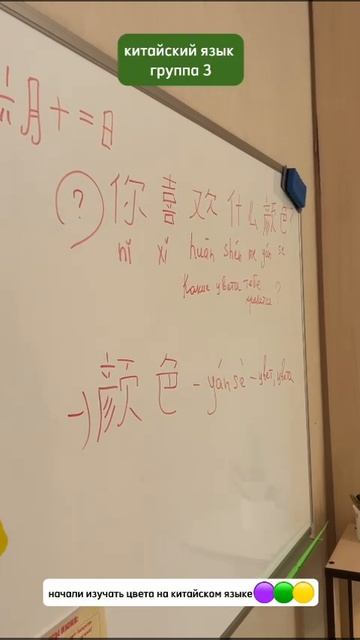 китайский язык
группа 3
六月十二日
? 你喜欢什么颜色?
nǐ xǐ huān shén me yán sè
Какие цвета тебе
нравятся ?
颜色 - yánsè - цвет, цвета
начали изучать цвета на китайском языке🟣🟢🟡